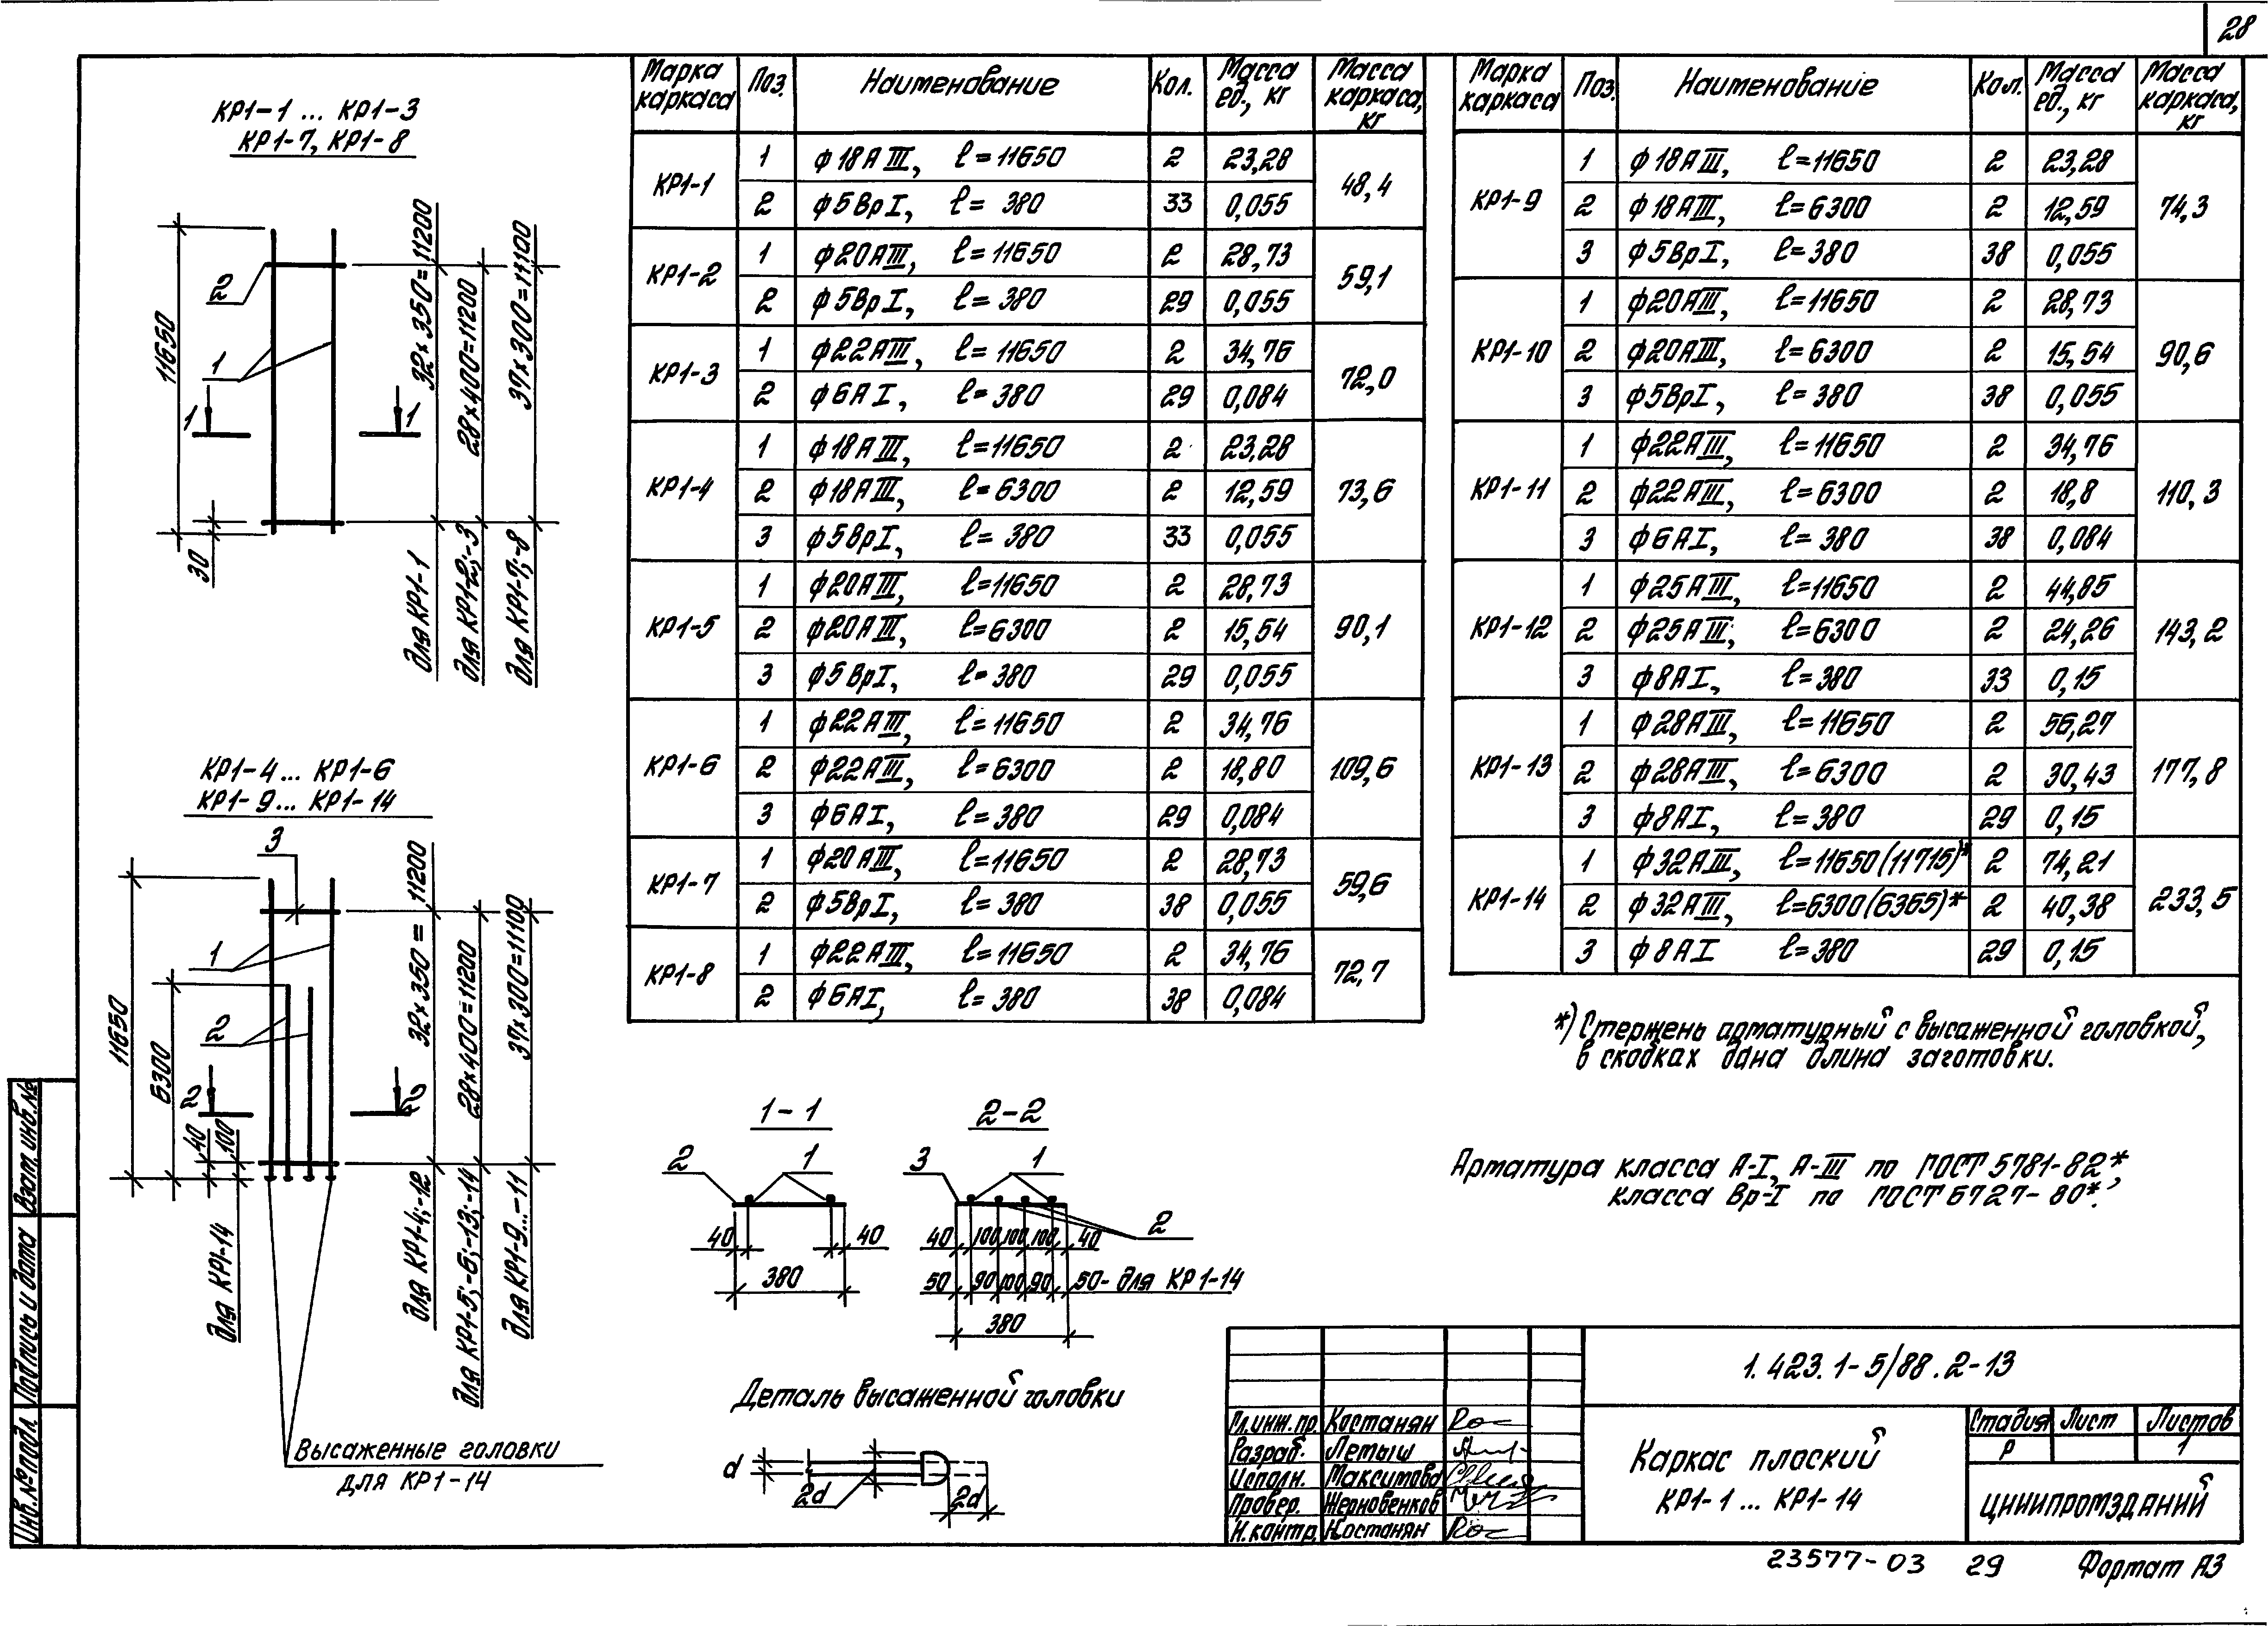 28
КР1-1 ... КР1-3
КР1-7, КР1-8
11650
30
2
1
1
1
32×350=11200
28×400=11200
37×300=11100
для КР1-1
для КР1-2;-3
для КР1-7;-8
КР1-4 ... КР1-6
КР1-9 ... КР1-14
3
1
2
2
2
11650
6300
40
100
для КР1-14
32×350=11200
28×400=11200
37×300=11100
для КР1-4;-12
для КР1-5;-6;-13;-14
для КР1-9...-11
Высаженные головки
для КР1-14
Марка каркаса Поз. Наименование Кол. Масса ед., кг Масса каркаса, кг
КР1-1 48,4
1 ф18АIII, ℓ=11650 2 23,28
2 ф5ВрI, ℓ=380 33 0,055
КР1-2 59,1
1 ф20АIII, ℓ=11650 2 28,73
2 ф5ВрI, ℓ=380 29 0,055
КР1-3 72,0
1 ф22АIII, ℓ=11650 2 34,76
2 ф6АI, ℓ=380 29 0,084
КР1-4 73,6
1 ф18АIII, ℓ=11650 2 23,28
2 ф18АIII, ℓ=6300 2 12,59
3 ф5ВрI, ℓ=380 33 0,055
КР1-5 90,1
1 ф20АIII, ℓ=11650 2 28,73
2 ф20АIII, ℓ=6300 2 15,54
3 ф5ВрI, ℓ=380 29 0,055
КР1-6 109,6
1 ф22АIII, ℓ=11650 2 34,76
2 ф22АIII, ℓ=6300 2 18,80
3 ф6АI, ℓ=380 29 0,084
КР1-7 59,6
1 ф20АIII, ℓ=11650 2 28,73
2 ф5ВрI, ℓ=380 38 0,055
КР1-8 72,7
1 ф22АIII, ℓ=11650 2 34,76
2 ф6АI, ℓ=380 38 0,084
Марка каркаса Поз. Наименование Кол. Масса ед., кг Масса каркаса, кг
КР1-9 74,3
1 ф18АIII, ℓ=11650 2 23,28
2 ф18АIII, ℓ=6300 2 12,59
3 ф5ВрI, ℓ=380 38 0,055
КР1-10 90,6
1 ф20АIII, ℓ=11650 2 28,73
2 ф20АIII, ℓ=6300 2 15,54
3 ф5ВрI, ℓ=380 38 0,055
КР1-11 110,3
1 ф22АIII, ℓ=11650 2 34,76
2 ф22АIII, ℓ=6300 2 18,8
3 ф6АI, ℓ=380 38 0,084
КР1-12 143,2
1 ф25АIII, ℓ=11650 2 44,85
2 ф25АIII, ℓ=6300 2 24,26
3 ф8АI, ℓ=380 33 0,15
КР1-13 177,8
1 ф28АIII, ℓ=11650 2 56,27
2 ф28АIII, ℓ=6300 2 30,43
3 ф8АI, ℓ=380 29 0,15
КР1-14 233,5
1 ф32АIII, ℓ=11650(11715)* 2 74,21
2 ф32АIII, ℓ=6300(6365)* 2 40,38
3 ф8АI ℓ=380 29 0,15
*) Стержень арматурный с высаженной головкой,
в скобках дана длина заготовки.
Арматура класса А-I, А-III по ГОСТ 5781-82*,
класса Вр-I по ГОСТ 6727-80*.
1-1
2
1
40
40
380
2-2
3
1
2
40 100 100 100 40
50 90 100 90 50- для КР1-14
380
Деталь высаженной головки
d
2d
2d
1.423.1-5/88.2-13
Гл.инж.пр. Костанян
Разраб. Летыш
Исполн. Максимова
Провер. Жерновенков
Н.контр. Костанян
Каркас плоский
КР1-1 ... КР1-14
Стадия Лист Листов
Р 1
ЦНИИПРОМЗДАНИЙ
23577-03 29 Формат А3
Взам. инв.№
Подпись и дата
Инв.№ подл.